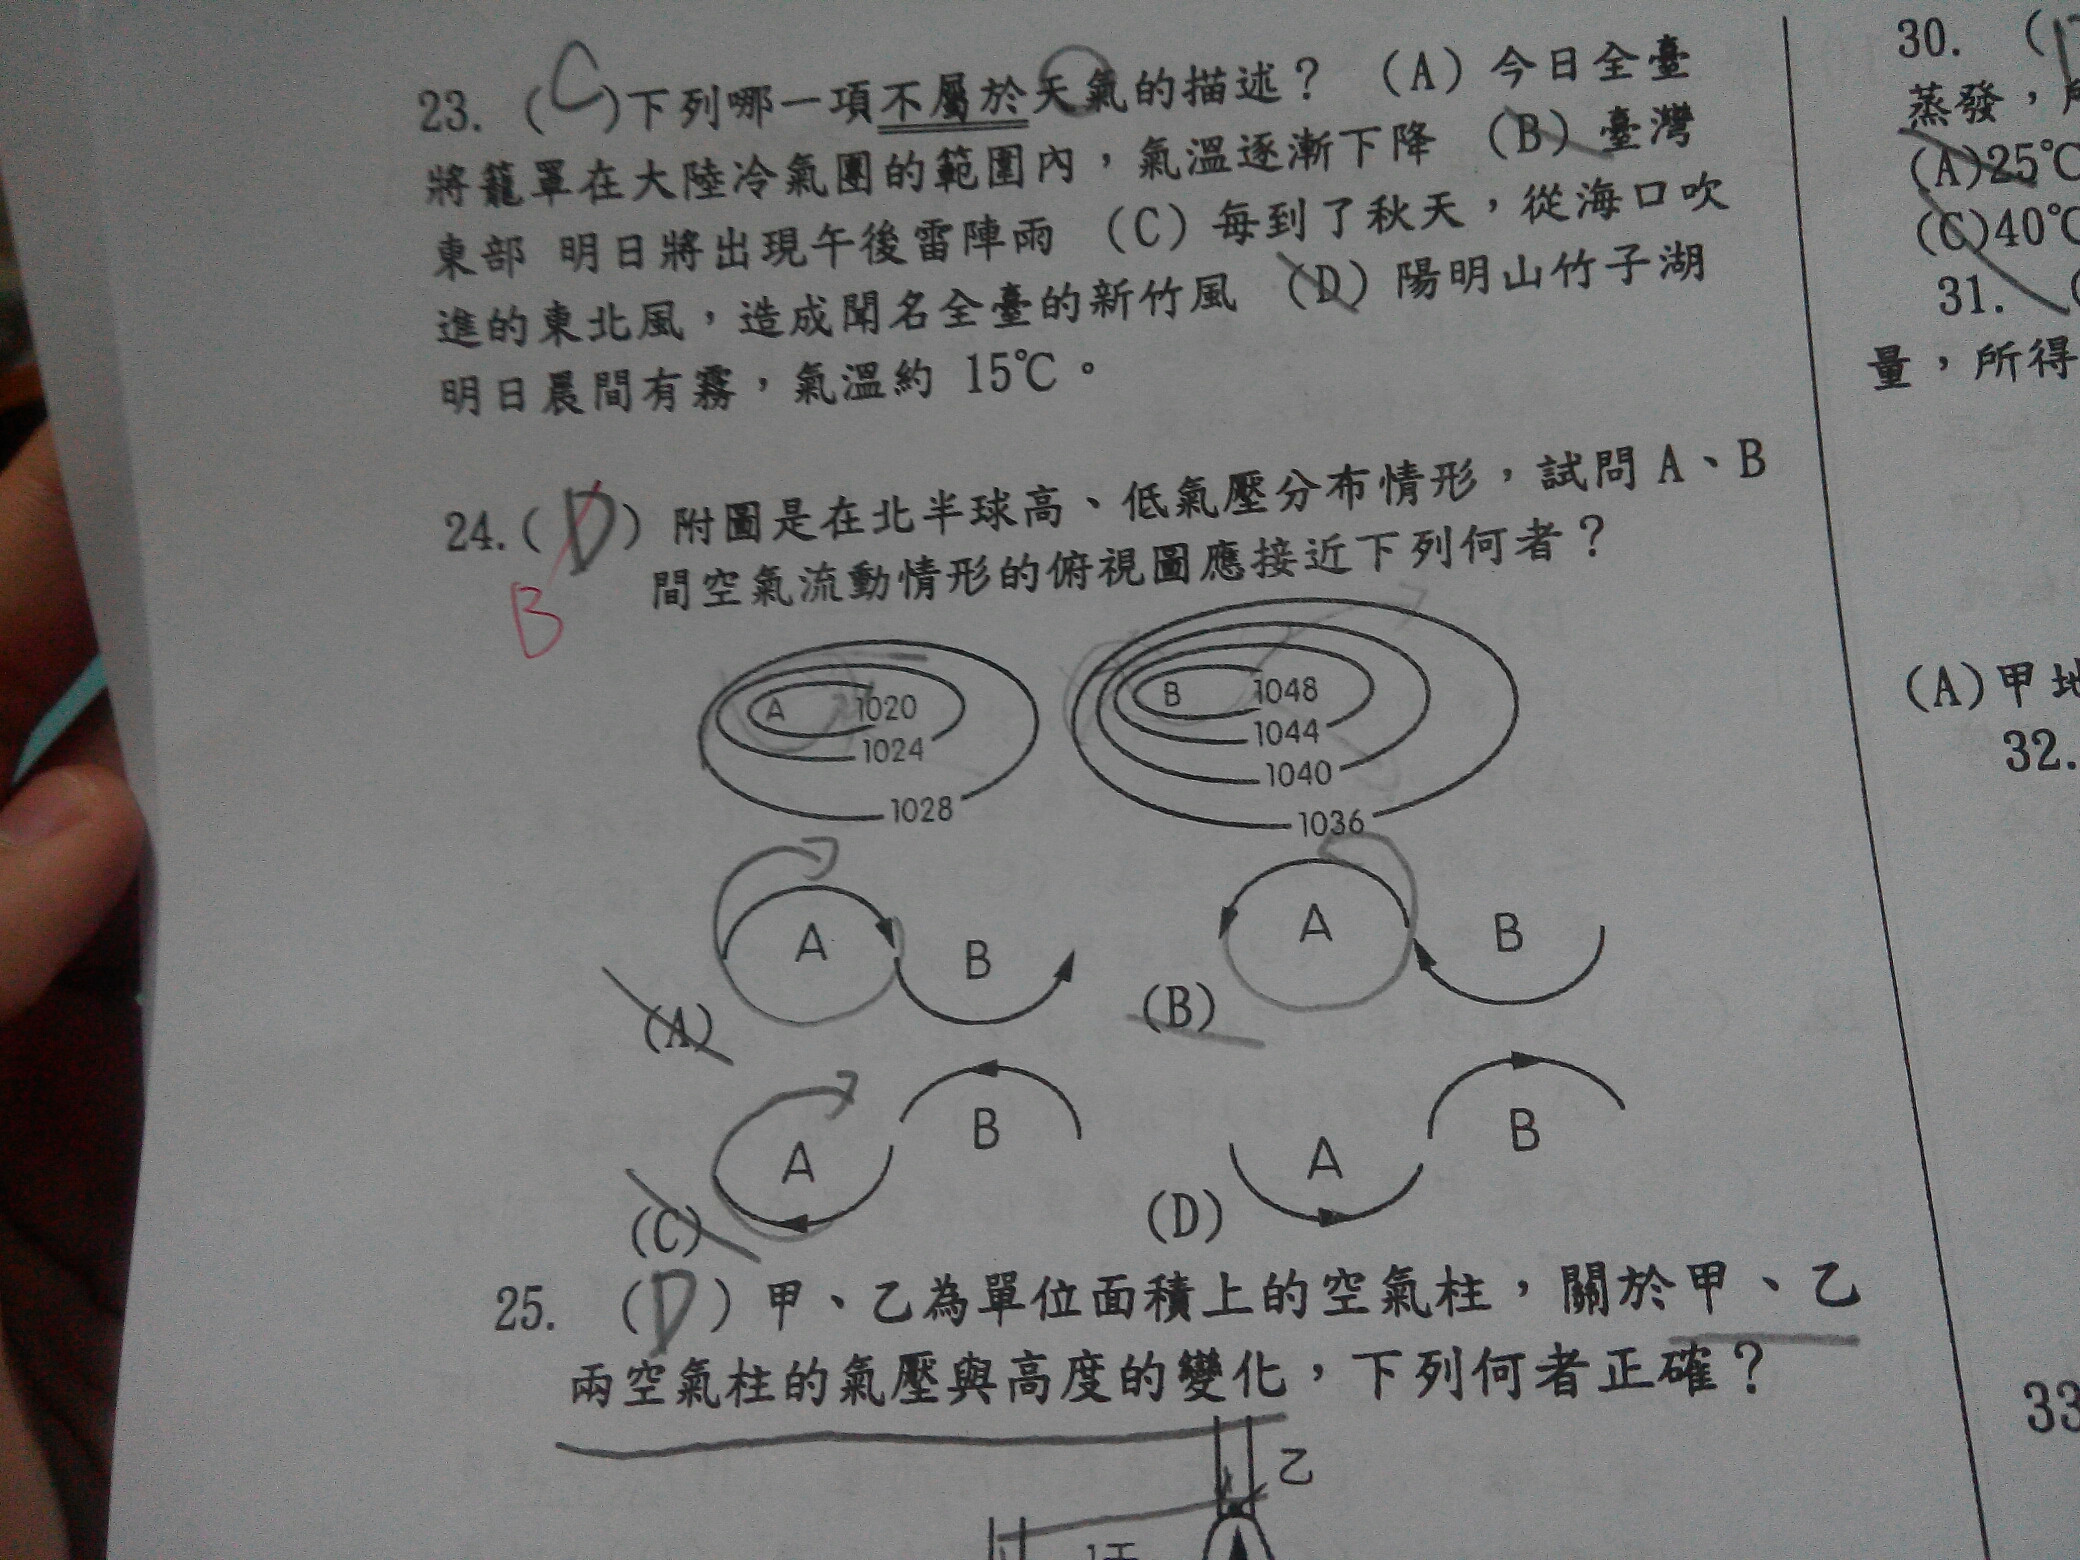 23. (C)下列哪一項不屬於天氣的描述？ (A) 今日全臺
將籠罩在大陸冷氣團的範圍內，氣溫逐漸下降 (B) 臺灣
東部 明日將出現午後雷陣雨 (C) 每到了秋天，從海口吹
進的東北風，造成聞名全臺的新竹風 (D) 陽明山竹子湖
明日晨間有霧，氣溫約 15℃。
24.(D) 附圖是在北半球高、低氣壓分布情形，試問 A、B
B
間空氣流動情形的俯視圖應接近下列何者？
A 1020
1024
1028
B 1048
1044
1040
1036
(A) A B
(B) A B
(C) A B
(D) A B
25. (D) 甲、乙為單位面積上的空氣柱，關於甲、乙
兩空氣柱的氣壓與高度的變化，下列何者正確？
乙
30. (
蒸發，
(A)25℃
(C)40℃
31. (
量，所得
(A)甲地
32.
33